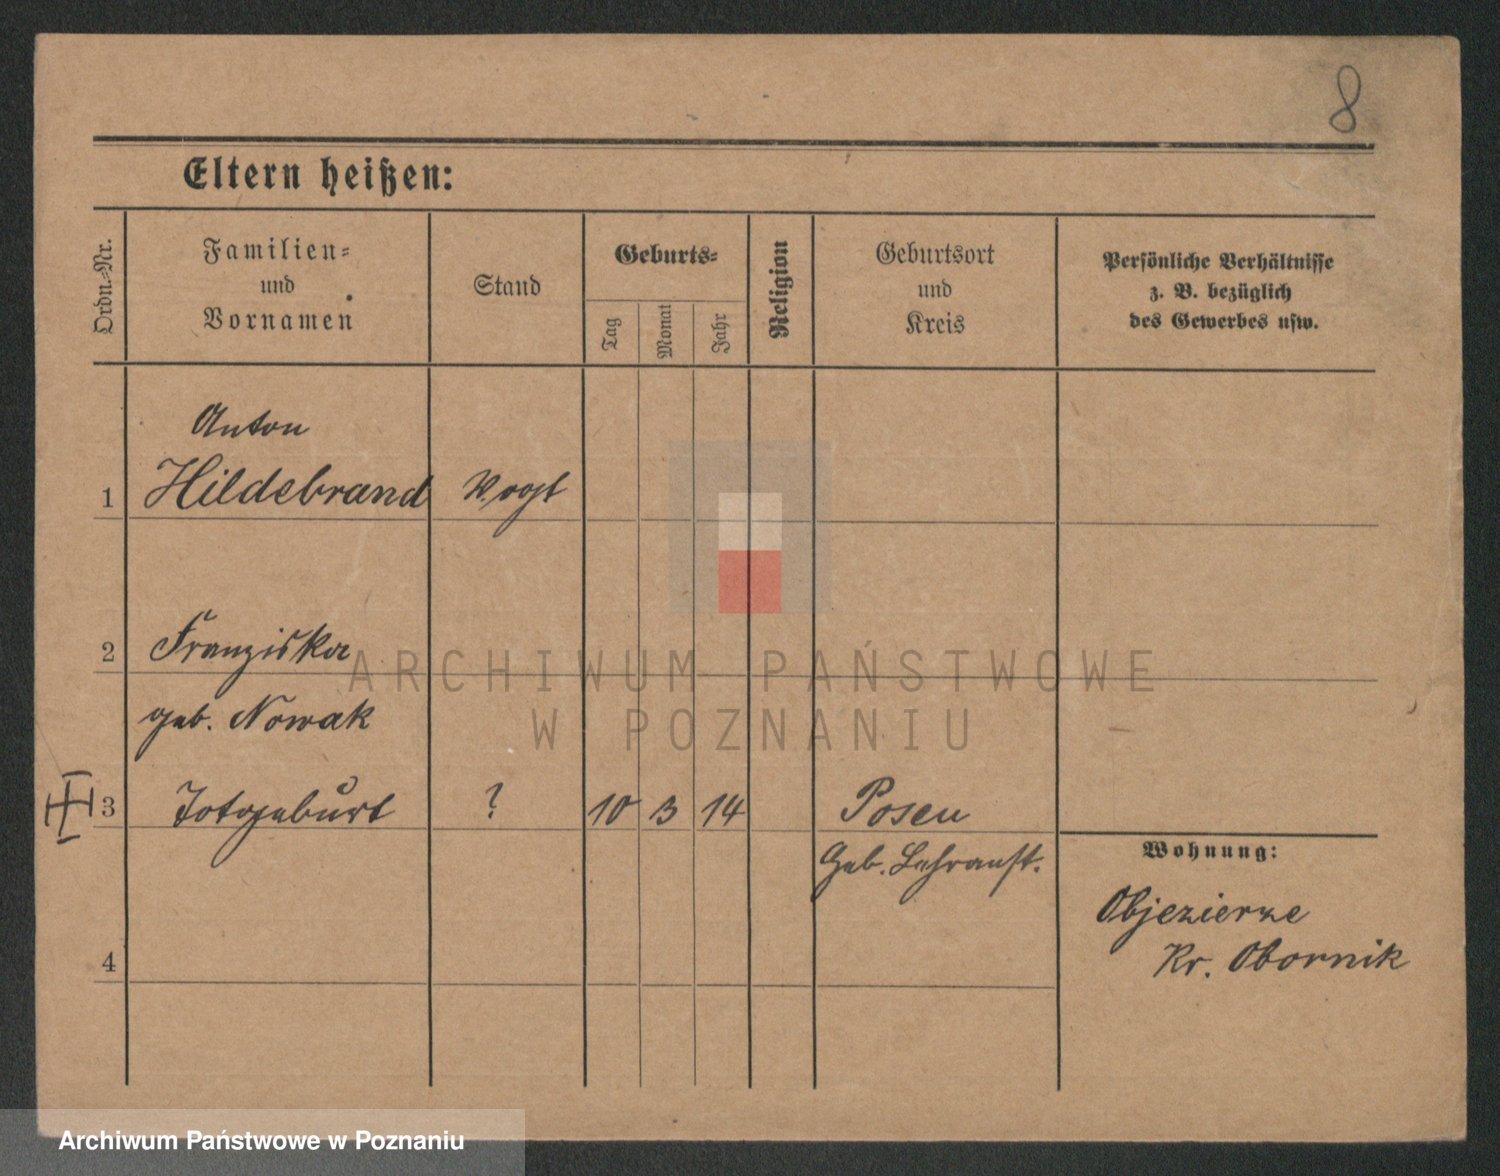 8
Eltern heißen:
Ordn.-Nr.
Familien-
und
Vornamen
Stand
Geburts-
Tag
Monat
Jahr
Religion
Geburtsort
und
Kreis
Persönliche Verhältnisse
z. B. bezüglich
des Gewerbes usw.
Anton
1 Hildebrand Vogt
2 Franziska
geb. Nowak
3 Totgeburt ? 10 3 14 Posen
Geb. Lehranst.
Wohnung:
Objezierze
Kr. Obornik
4
ARCHIWUM PAŃSTWOWE
W POZNANIU
Archiwum Państwowe w Poznaniu